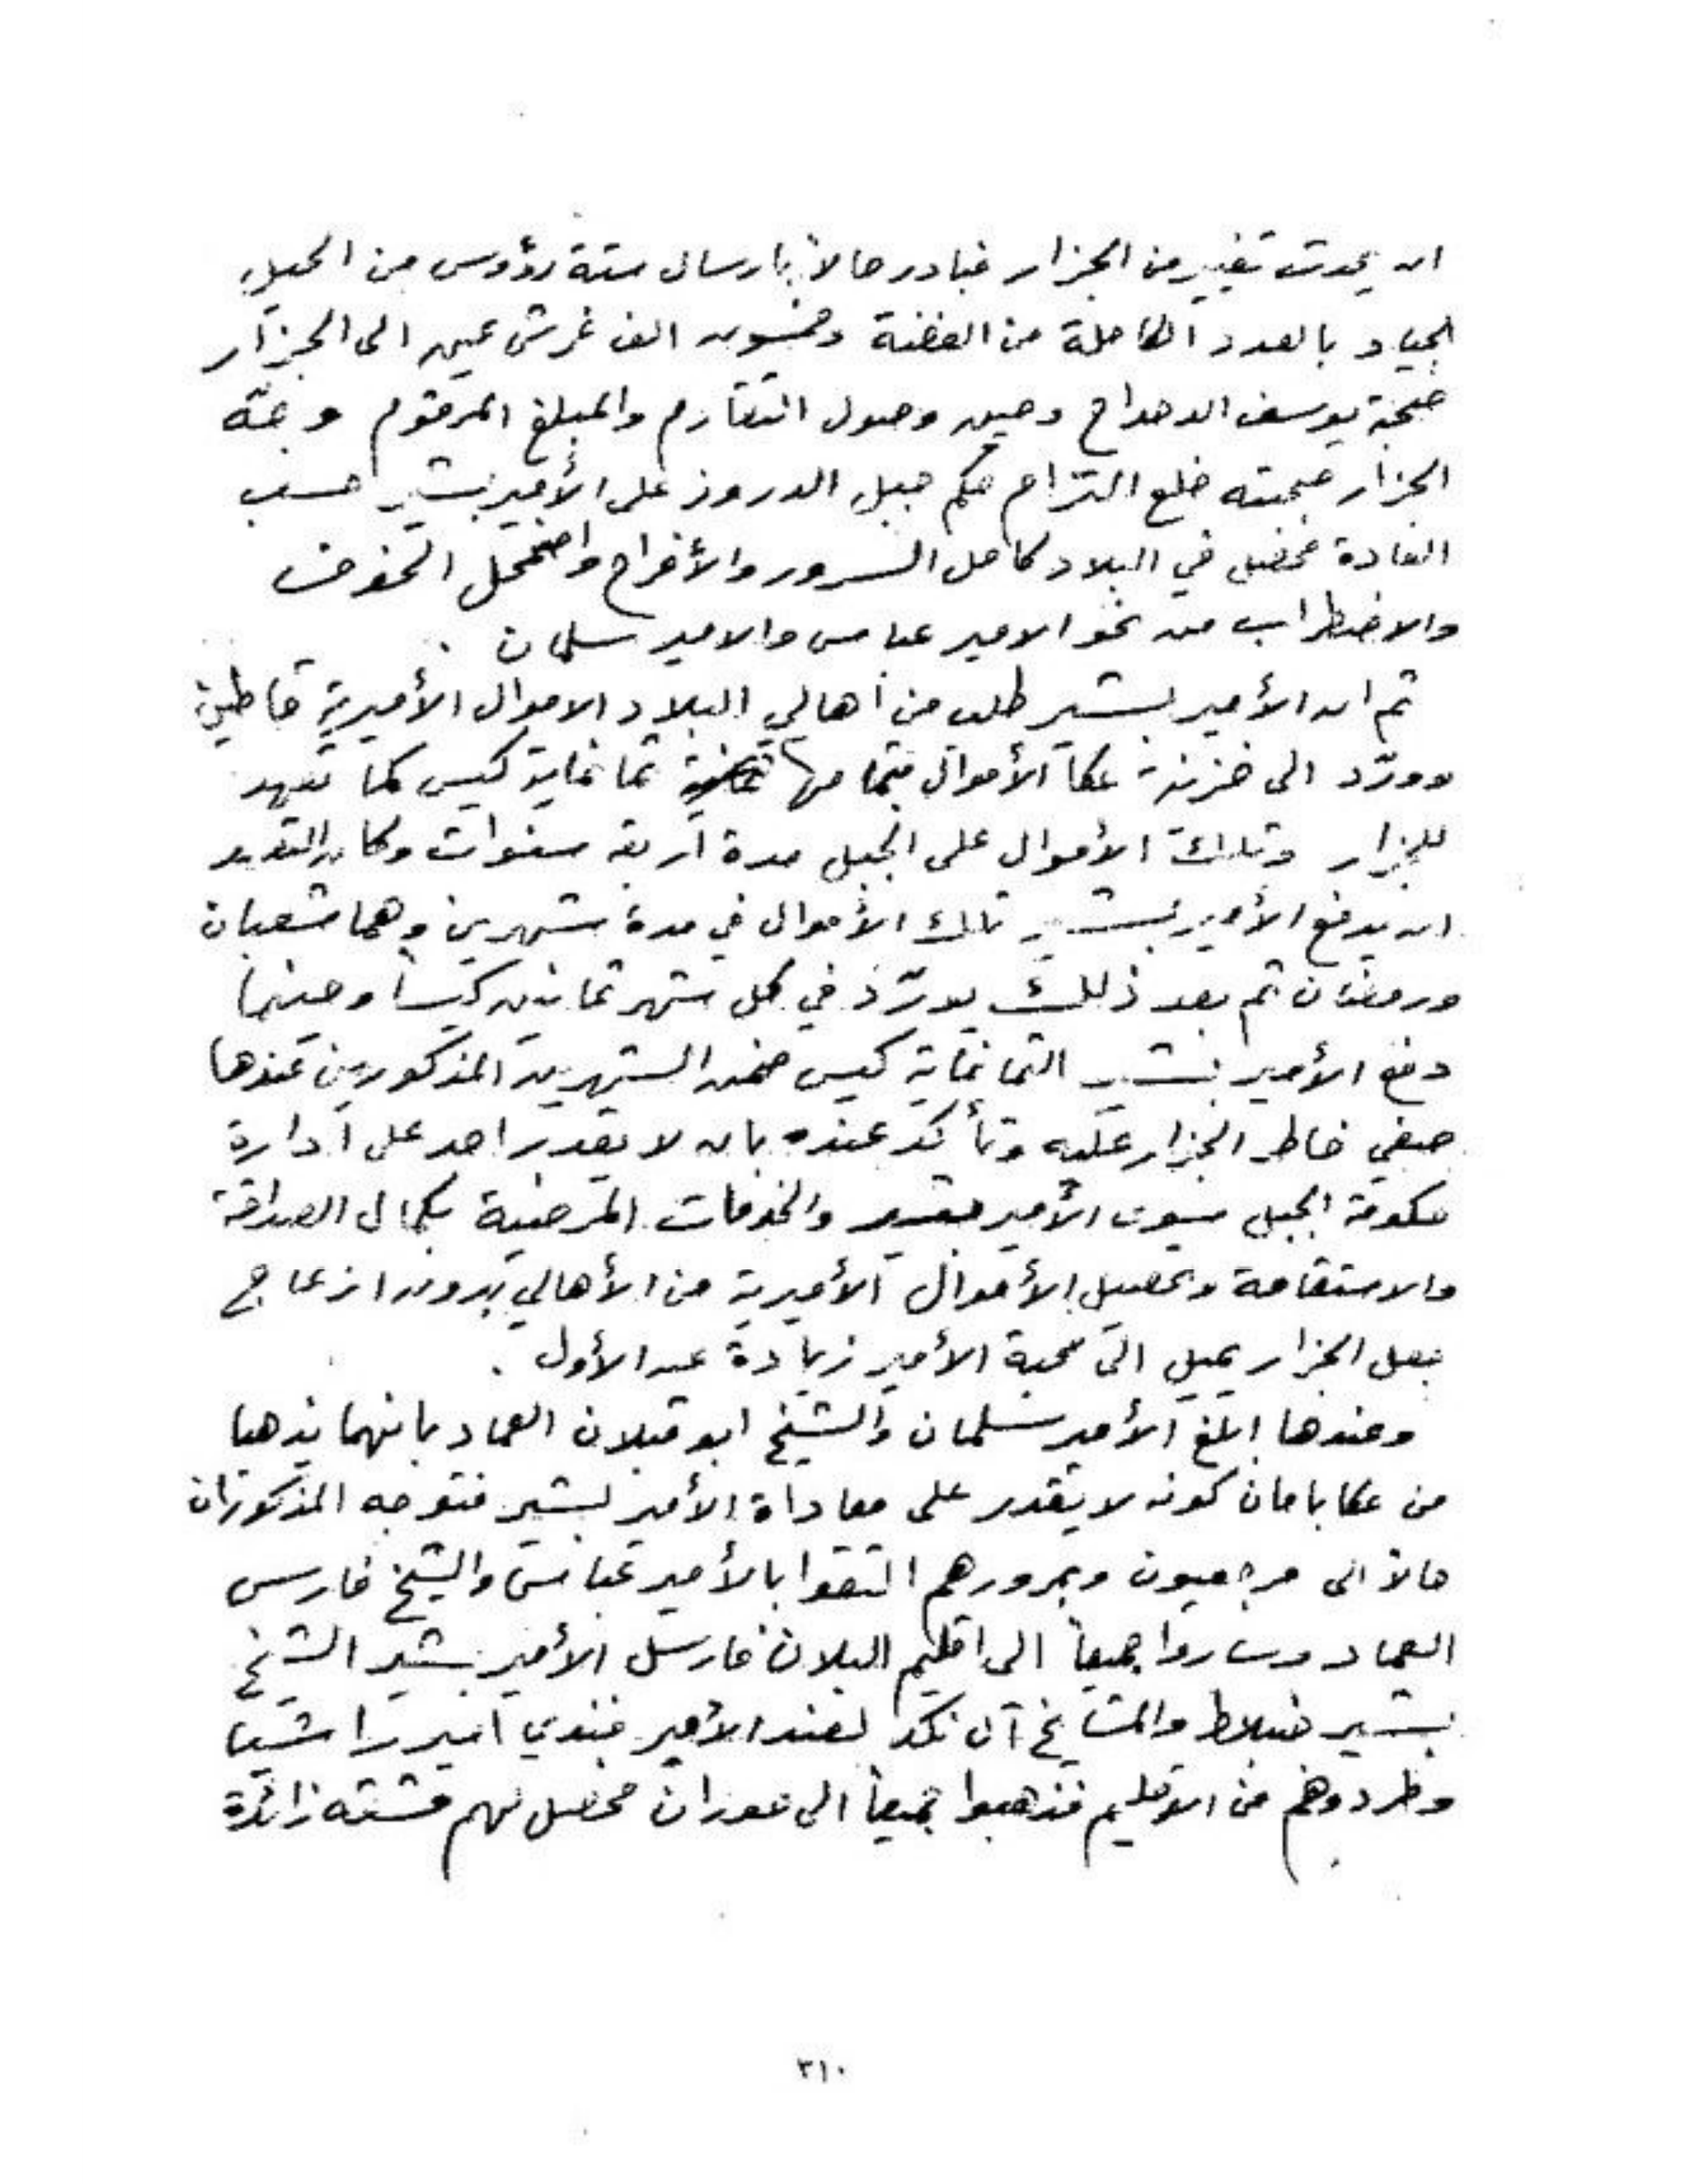 ان يحدث تغيير من الجزار فبادر حالاً بارسال ستة رؤوس من الخيل
الجياد بالعدد الكاملة من الفضة وخمسون الف غرش عين الى الجزار
صحبة يوسف الدحداح وحين وصول التقارم والمبلغ المرقوم وجّه
الجزار صحبته خلع التزام حكم جبل الدروز على الأمير بشير حسب
العادة فحصل في البلاد كامل السرور والأفراح واضمحل الخوف
والاضطراب من نحو الامير عباس والامير سلمان .
ثم ان الأمير بشير طلب من أهالي البلاد الاموال الأميرية قاطبةً
وورّد الى خزينة عكا الأموال بتمامها ثمانماية كيس كما تعهد
للجزار وتلك الأموال على الجبل مدة أربعة سنوات وكان التعهد
ان يدفع الأمير بشير تلك الأموال في مدة شهرين وهما شعبان
ورمضان ثم بعد ذلك يورّد في كل شهر ثمانين كيساً وحينما
دفع الأمير بشير الثمانماية كيس ضمن الشهرين المذكورين عندها
صفي خاطر الجزار عليه وتأكد عنده بان لا يقدر احد على ادارة
حكومة الجبل سوى الأمير بشير والخدمات المرضية بكمال الصداقة
والاستقامة وتحصيل الأموال الأميرية من الأهالي بدون ازعاج
جعل الجزار يميل الى محبة الأمير زيادة عن الأول .
وعندها ابلغ الأمير سلمان والشيخ ابو قبلان العماد بانهما يذهبا
من عكا بامان كونه لا يقدر على معاداة الأمير بشير فتوجه المذكوران
حالاً الى مرجعيون وبمرورهم التقوا بالأمير عباس والشيخ فارس
العماد وساروا جميعاً الى اقليم البلان فارسل الأمير بشير الشيخ
بشير جنبلاط والمشايخ آل نكد لعند الأمير فندي أمير راشيا
وطردوهم من الاقليم فذهبوا جميعاً الى حوران فحصل لهم مشقة زائدة
٣١٠